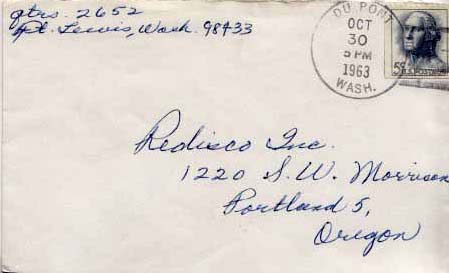 qtrs. 2652
Ft. Lewis, Wash. 98433
DU PONT
OCT
30
5 PM
1963
WASH.
5¢ U.S. POSTAGE
Redisco Inc.
1220 S. W. Morrison
Portland 5,
Oregon